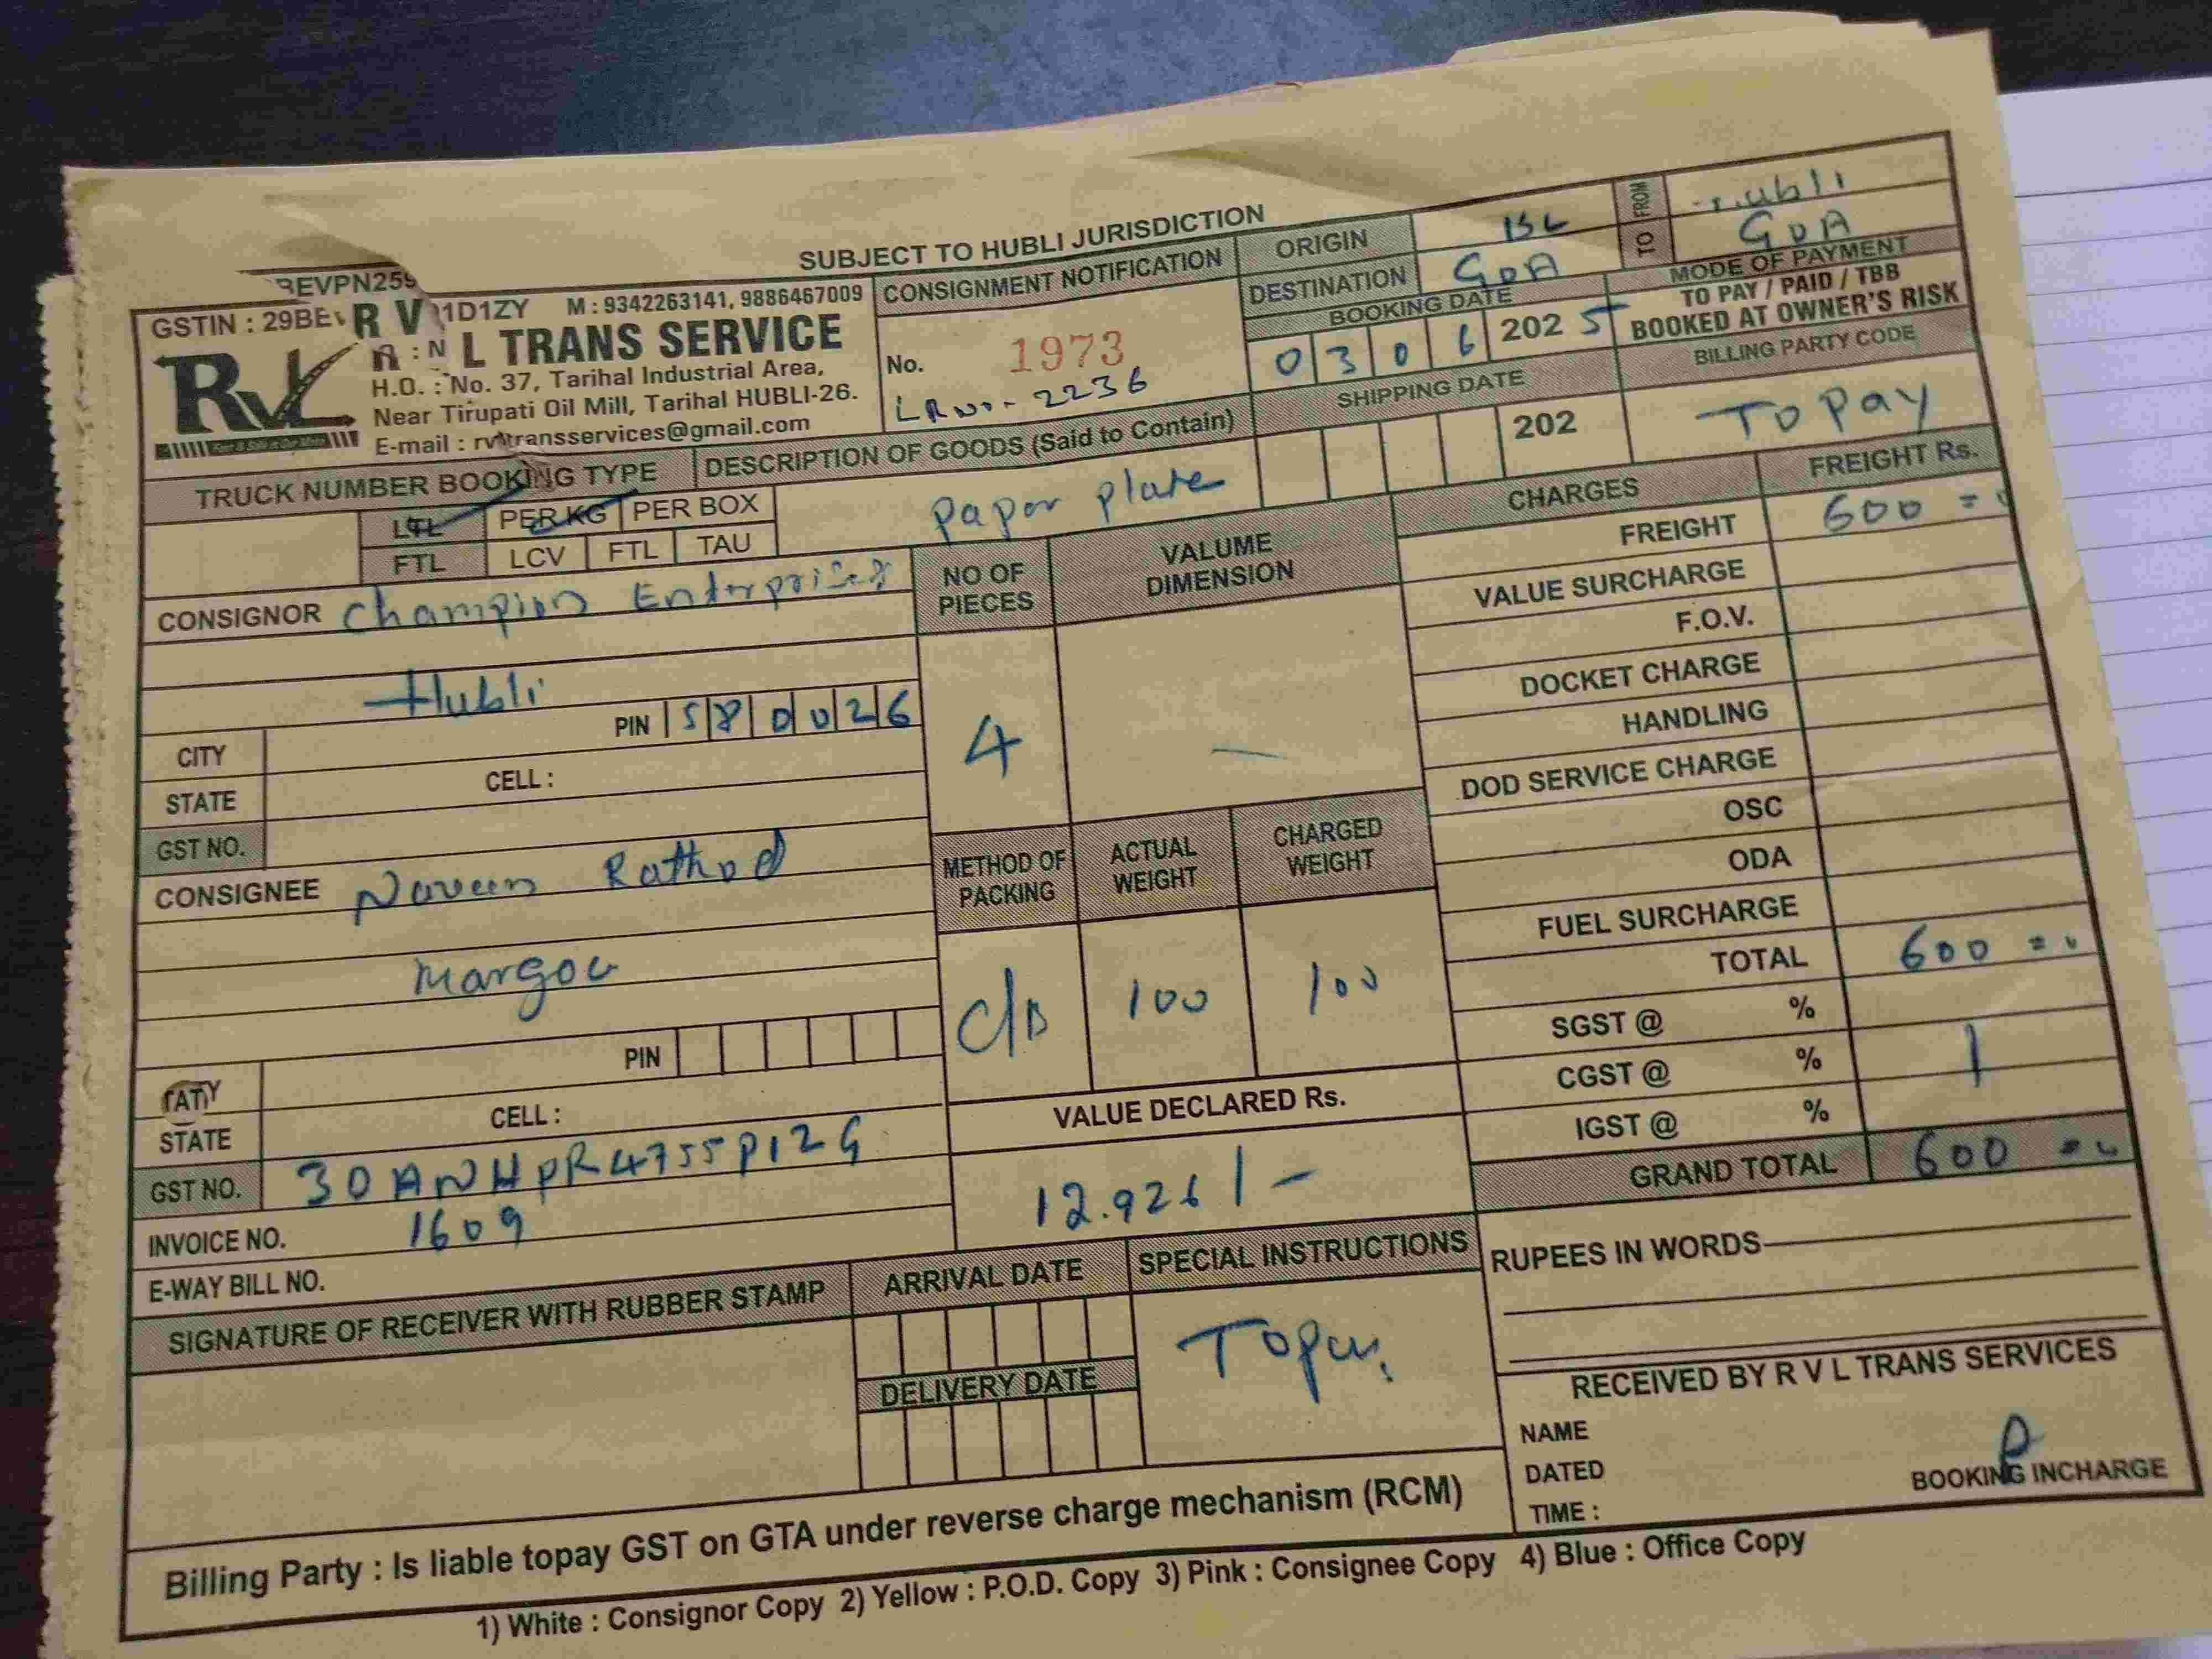 SUBJECT TO HUBLI JURISDICTION
REVPN259
GSTIN : 29BE R V 1D1ZY M : 9342263141, 9886467009
RVL
L TRANS SERVICE
H.O. : No. 37, Tarihal Industrial Area,
Near Tirupati Oil Mill, Tarihal HUBLI-26.
E-mail : rvltransservices@gmail.com
CONSIGNMENT NOTIFICATION
No. 1973
LR No - 2236
ORIGIN
DESTINATION GOA
BOOKING DATE
0 3 0 6 2025
SHIPPING DATE
202
FROM Hubli
TO GOA
MODE OF PAYMENT
TO PAY / PAID / TBB
BOOKED AT OWNER'S RISK
BILLING PARTY CODE
To pay
TRUCK NUMBER BOOKING TYPE
LTL PER KG PER BOX
FTL LCV FTL TAU
DESCRIPTION OF GOODS (Said to Contain)
Paper plate
CONSIGNOR Champion Enterprises
Hubli
PIN 5 8 0 0 2 6
CITY
STATE CELL :
GST NO.
CONSIGNEE Naveen Rathod
Margoa
PIN
STATE CELL :
GST NO. 30ANHPR4755P1ZG
INVOICE NO. 1609
E-WAY BILL NO.
NO OF PIECES
4
VALUME DIMENSION
—
METHOD OF PACKING
C/B
ACTUAL WEIGHT
100
CHARGED WEIGHT
100
VALUE DECLARED Rs.
12.926/-
CHARGES FREIGHT Rs.
FREIGHT 600 =
VALUE SURCHARGE
F.O.V.
DOCKET CHARGE
HANDLING
DOD SERVICE CHARGE
OSC
ODA
FUEL SURCHARGE
TOTAL 600 =
SGST @ %
CGST @ %
IGST @ %
GRAND TOTAL 600 =
SIGNATURE OF RECEIVER WITH RUBBER STAMP
ARRIVAL DATE
DELIVERY DATE
SPECIAL INSTRUCTIONS
Topay
RUPEES IN WORDS
RECEIVED BY R V L TRANS SERVICES
NAME
DATED
TIME :
BOOKING INCHARGE
Billing Party : Is liable topay GST on GTA under reverse charge mechanism (RCM)
1) White : Consignor Copy 2) Yellow : P.O.D. Copy 3) Pink : Consignee Copy 4) Blue : Office Copy